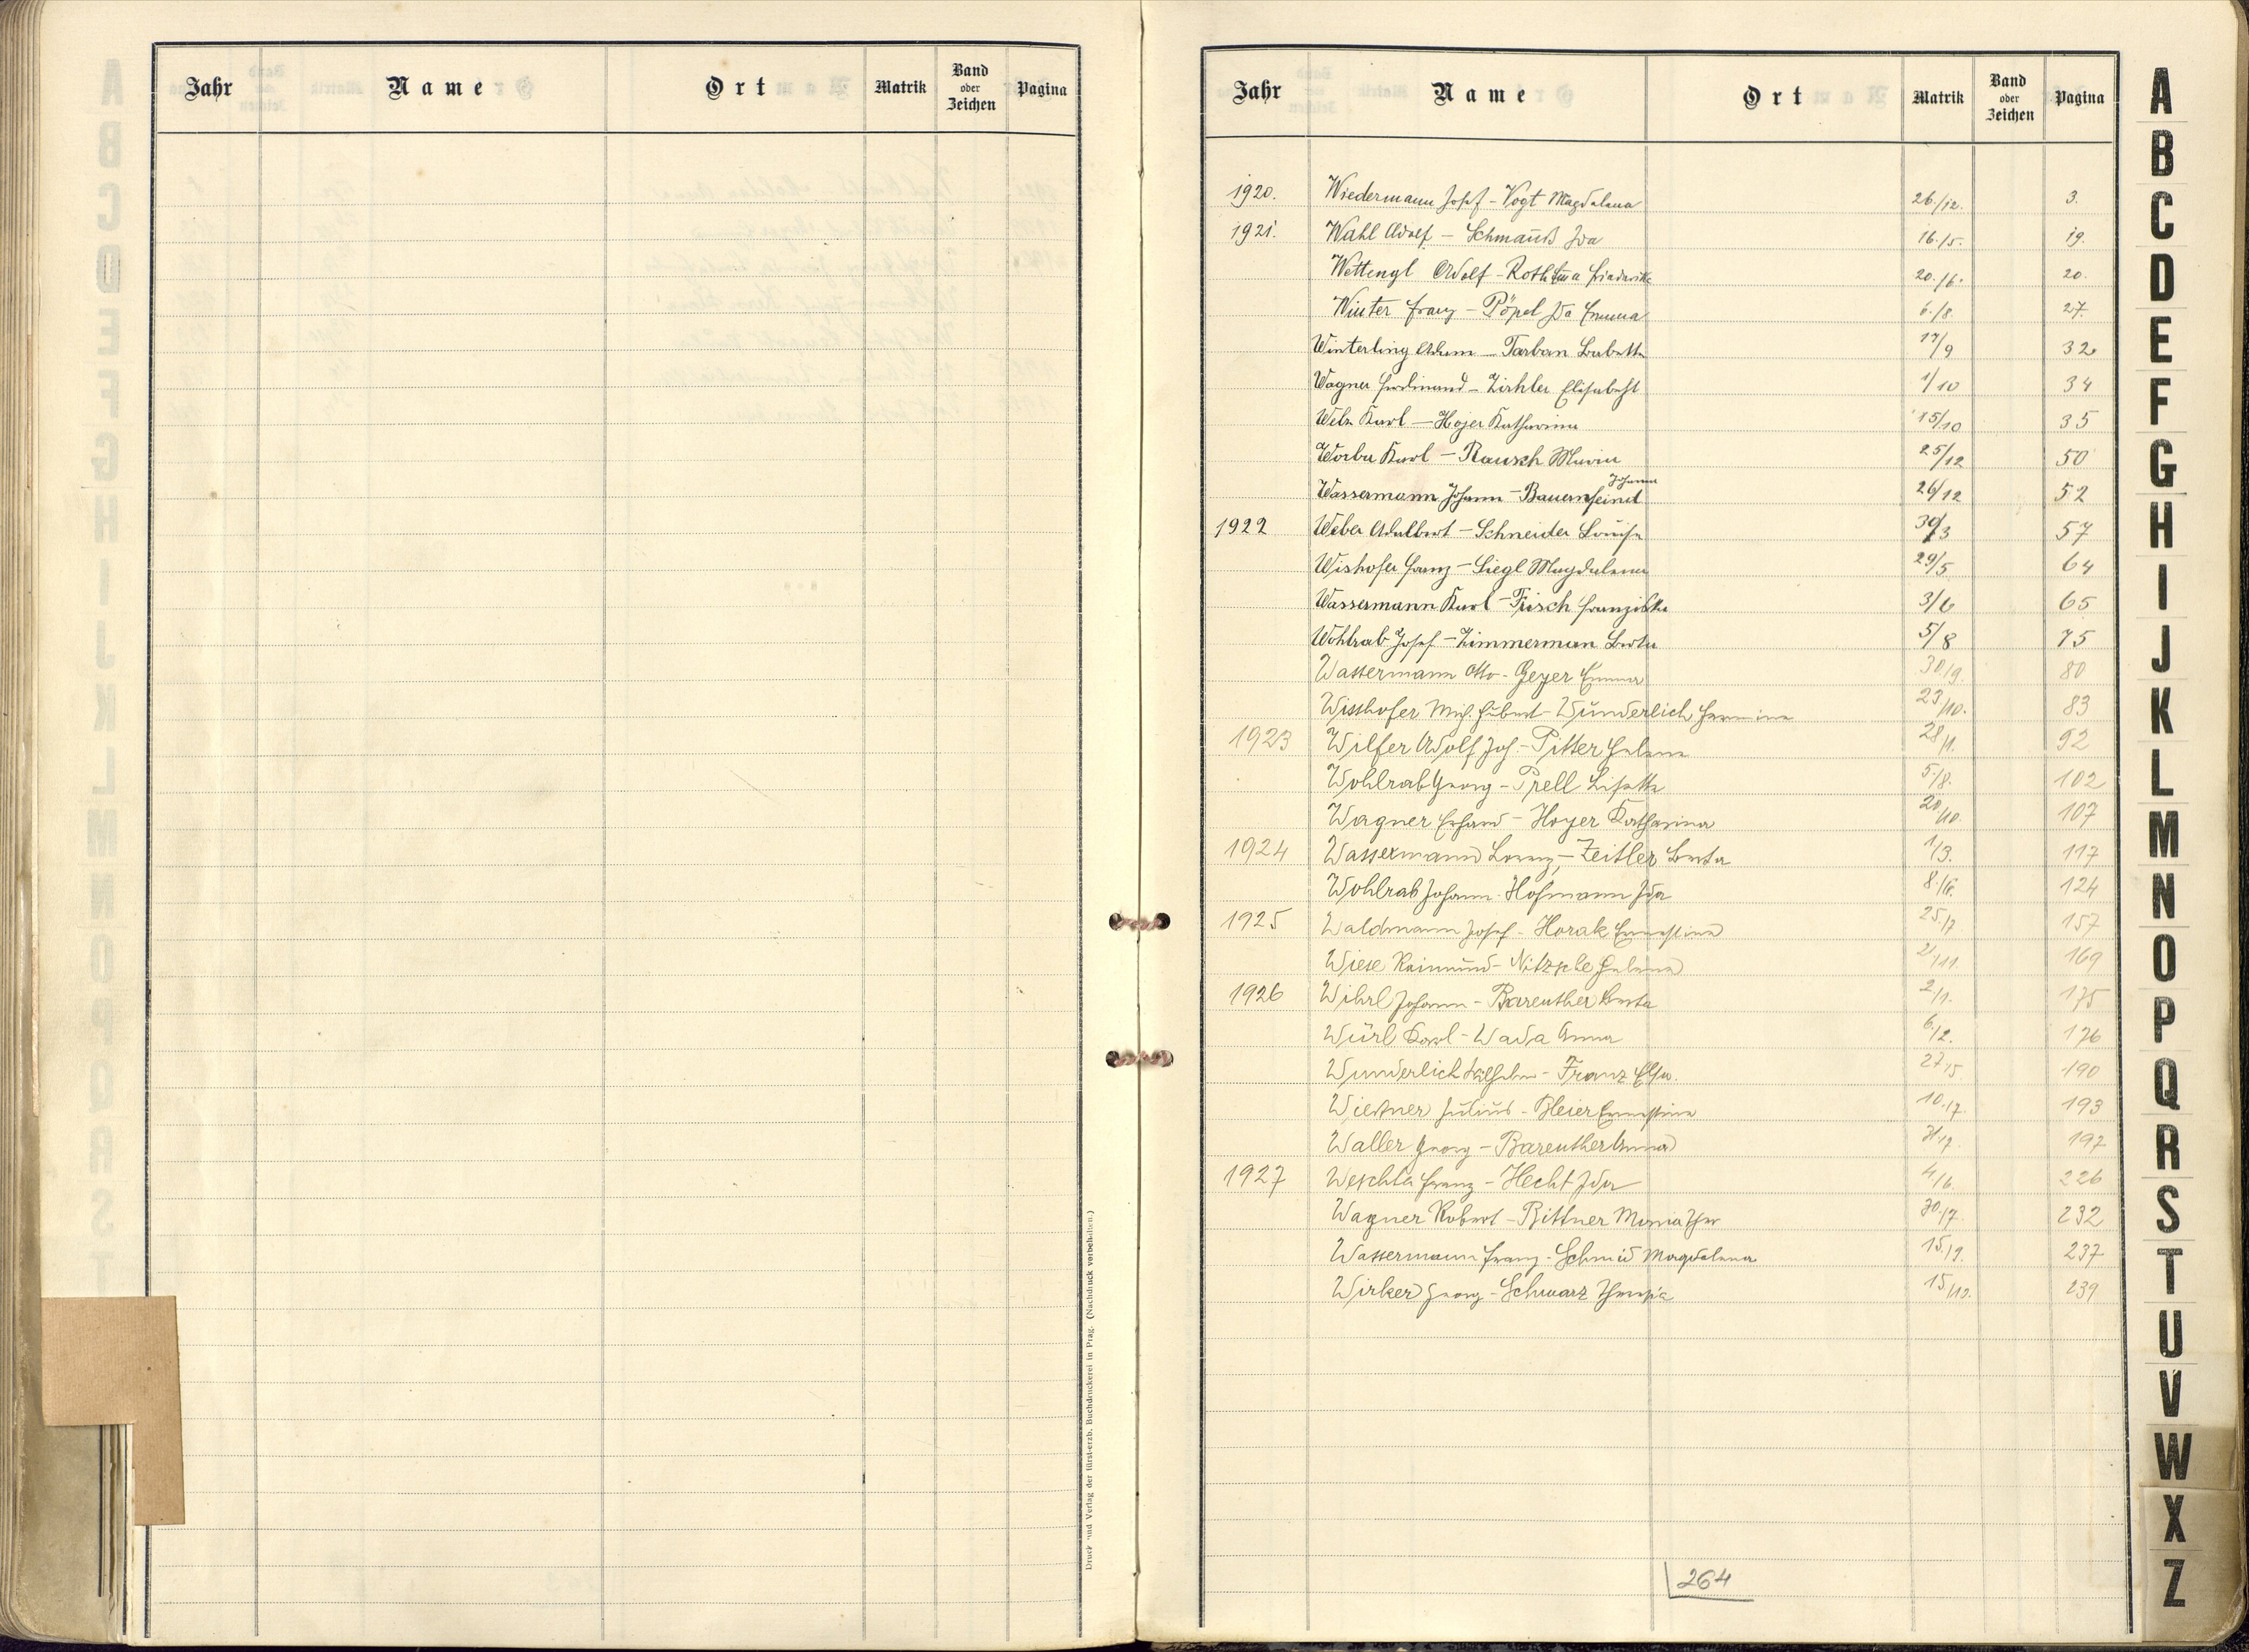 Jahr Name Ort Matrik Band oder Zeichen Pagina
Druck und Verlag der fürst-erzb. Buchdruckerei in Prag. (Nachdruck vorbehalten.)
Jahr Name Ort Matrik Band oder Zeichen Pagina
1920. Wiedermann Josef - Vogt Magdalena 26./12. 3.
1921. Wahl Adolf - Schmauß Ida 16./5. 19.
Wettengl Adolf - Roth Friederike 20./6. 20.
Winter Franz - Pöpel Ida Emma 6./8. 27.
Winterling Adam - Tarban Babette 17/9 32
Wagner Ferdinand - Zirkler Elisabeth 1/10 34
Welz Karl - Hojer Katharina 15/10 35
Worba Karl - Rausch Maria 25/12 50
Wassermann Johann - Bauernfeind Johanna 26/12 52
1922 Weber Adalbert - Schneider Louise 30/3 57
Wishofer Franz - Siegl Magdalena 29/5 64
Wassermann Karl - Frisch Franziska 3/6 65
Wohlrab Josef - Zimmerman Berta 5/8 75
Wassermann Otto - Geyer Emma 30./9. 80
Wisshofer Mich. Hubert - Wunderlich Hermine 23./10. 83
1923 Wilfer Adolf Jos. - Pitter Helene 28/1. 92
Wohlrab Georg - Prell Lisette 5./8. 102
Wagner Erhard - Hoyer Katharina 20/10. 107
1924 Wassermann Lorenz - Zeitler Berta 1/3. 117
Wohlrab Johann - Hofmann Ida 8./6. 124
1925 Waldmann Josef - Horak Ernestine 25./7 157
Wiese Raimund - Nitzsche Helene 21/11. 169
1926 Wihrl Johann - Bareuther Berta 2/1. 175
Würl Karl - Wada Anna 6./2. 176
Wunderlich Wilhelm - Franz Elsa. 27./5. 190
Wiestner Julius - Beier Ernestine 10./7. 193
Waller Georg - Bareuther Anna 197
1927 Weschta Franz - Hecht Ida 4/6. 226
Wagner Robert - Bittner Maria Ther 30./7. 232
Wassermann Franz - Schmid Magdalena 15./9. 237
Wirker Georg - Schwarz Theresia 15./10. 239
264
A
B
C
D
E
F
G
H
I
J
K
L
M
N
O
P
Q
R
S
T
U
V
W
X
Z